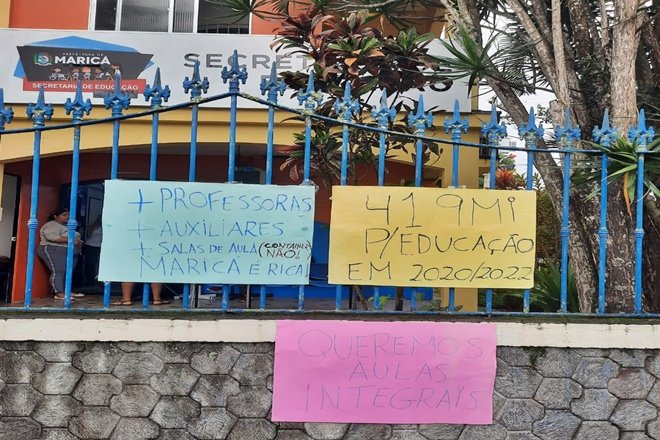 PREFEITURA DE
MARICÁ
SECRETARIA DE EDUCAÇÃO
SECRE
+ PROFESSORAS
+ AUXILIARES
+ SALAS DE AULA (CONTAINER
NÃO)
MARICÁ É RICA!
419 Mi
P/ EDUCAÇÃO
EM 2020/2022
QUEREMOS
AULAS
INTEGRAIS